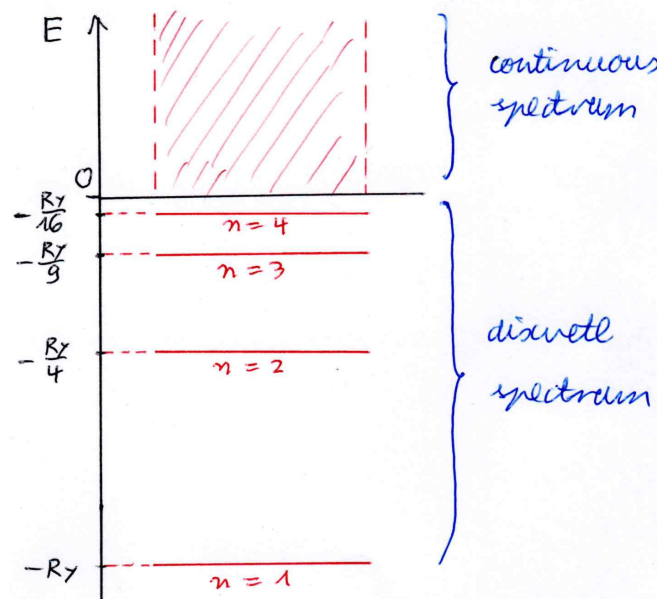 E
continuous
spectrum
0
-Ry/16
n = 4
-Ry/9
n = 3
discrete
-Ry/4
n = 2
spectrum
-Ry
n = 1